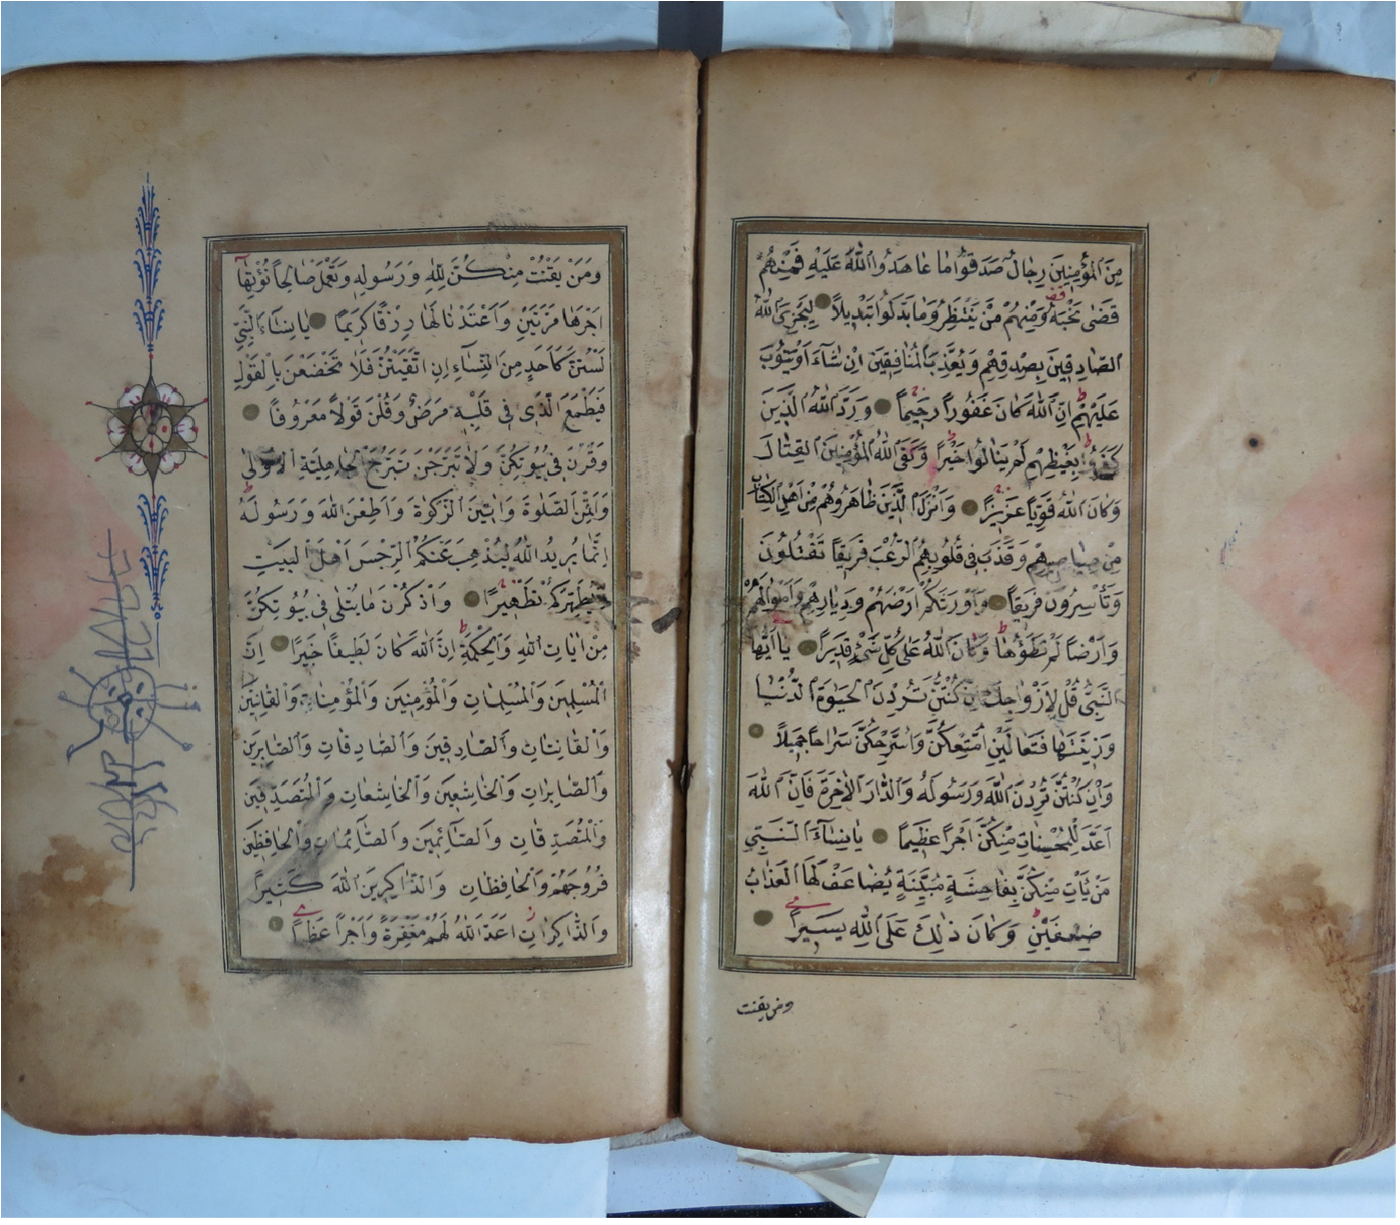 مِنَ الْمُؤْمِنِينَ رِجَالٌ صَدَقُوا مَا عَاهَدُوا اللّٰهَ عَلَيْهِ فَمِنْهُمْ
قَضٰى نَحْبَهُ وَمِنْهُمْ مَنْ يَنْتَظِرُ وَمَا بَدَّلُوا تَبْدِيلًا لِيَجْزِيَ اللّٰهُ
الصَّادِقِينَ بِصِدْقِهِمْ وَيُعَذِّبَ الْمُنَافِقِينَ اِنْ شَاءَ اَوْ يَتُوبَ
عَلَيْهِمْ اِنَّ اللّٰهَ كَانَ غَفُورًا رَحِيمًا وَرَدَّ اللّٰهُ الَّذِينَ
كَفَرُوا بِغَيْظِهِمْ لَمْ يَنَالُوا خَيْرًا وَكَفَى اللّٰهُ الْمُؤْمِنِينَ الْقِتَالَ
وَكَانَ اللّٰهُ قَوِيًّا عَزِيزًا وَاَنْزَلَ الَّذِينَ ظَاهَرُوهُمْ مِنْ اَهْلِ الْكِتَابِ
مِنْ صَيَاصِيهِمْ وَقَذَفَ فِي قُلُوبِهِمُ الرُّعْبَ فَرِيقًا تَقْتُلُونَ
وَتَأْسِرُونَ فَرِيقًا وَاَوْرَثَكُمْ اَرْضَهُمْ وَدِيَارَهُمْ وَاَمْوَالَهُمْ
وَاَرْضًا لَمْ تَطَؤُهَا وَكَانَ اللّٰهُ عَلٰى كُلِّ شَيْءٍ قَدِيرًا يَا اَيُّهَا
النَّبِيُّ قُلْ لِاَزْوَاجِكَ اِنْ كُنْتُنَّ تُرِدْنَ الْحَيٰوةَ الدُّنْيَا
وَزِينَتَهَا فَتَعَالَيْنَ اُمَتِّعْكُنَّ وَاُسَرِّحْكُنَّ سَرَاحًا جَمِيلًا
وَاِنْ كُنْتُنَّ تُرِدْنَ اللّٰهَ وَرَسُولَهُ وَالدَّارَ الْاٰخِرَةَ فَاِنَّ اللّٰهَ
اَعَدَّ لِلْمُحْسِنَاتِ مِنْكُنَّ اَجْرًا عَظِيمًا يَا نِسَاءَ النَّبِيِّ
مَنْ يَأْتِ مِنْكُنَّ بِفَاحِشَةٍ مُبَيِّنَةٍ يُضَاعَفْ لَهَا الْعَذَابُ
ضِعْفَيْنِ وَكَانَ ذٰلِكَ عَلَى اللّٰهِ يَسِيرًا
ومن يقنت
وَمَنْ يَقْنُتْ مِنْكُنَّ لِلّٰهِ وَرَسُولِهِ وَتَعْمَلْ صَالِحًا نُؤْتِهَا
اَجْرَهَا مَرَّتَيْنِ وَاَعْتَدْنَا لَهَا رِزْقًا كَرِيمًا يَا نِسَاءَ النَّبِيِّ
لَسْتُنَّ كَاَحَدٍ مِنَ النِّسَاءِ اِنِ اتَّقَيْتُنَّ فَلَا تَخْضَعْنَ بِالْقَوْلِ
فَيَطْمَعَ الَّذِي فِي قَلْبِهِ مَرَضٌ وَقُلْنَ قَوْلًا مَعْرُوفًا
وَقَرْنَ فِي بُيُوتِكُنَّ وَلَا تَبَرَّجْنَ تَبَرُّجَ الْجَاهِلِيَّةِ الْاُولٰى
وَاَقِمْنَ الصَّلٰوةَ وَاٰتِينَ الزَّكٰوةَ وَاَطِعْنَ اللّٰهَ وَرَسُولَهُ
اِنَّمَا يُرِيدُ اللّٰهُ لِيُذْهِبَ عَنْكُمُ الرِّجْسَ اَهْلَ الْبَيْتِ
وَيُطَهِّرَكُمْ تَطْهِيرًا وَاذْكُرْنَ مَا يُتْلٰى فِي بُيُوتِكُنَّ
مِنْ اٰيَاتِ اللّٰهِ وَالْحِكْمَةِ اِنَّ اللّٰهَ كَانَ لَطِيفًا خَبِيرًا اِنَّ
الْمُسْلِمِينَ وَالْمُسْلِمَاتِ وَالْمُؤْمِنِينَ وَالْمُؤْمِنَاتِ وَالْقَانِتِينَ
وَالْقَانِتَاتِ وَالصَّادِقِينَ وَالصَّادِقَاتِ وَالصَّابِرِينَ
وَالصَّابِرَاتِ وَالْخَاشِعِينَ وَالْخَاشِعَاتِ وَالْمُتَصَدِّقِينَ
وَالْمُتَصَدِّقَاتِ وَالصَّائِمِينَ وَالصَّائِمَاتِ وَالْحَافِظِينَ
فُرُوجَهُمْ وَالْحَافِظَاتِ وَالذَّاكِرِينَ اللّٰهَ كَثِيرًا
وَالذَّاكِرَاتِ اَعَدَّ اللّٰهُ لَهُمْ مَغْفِرَةً وَاَجْرًا عَظِيمًا